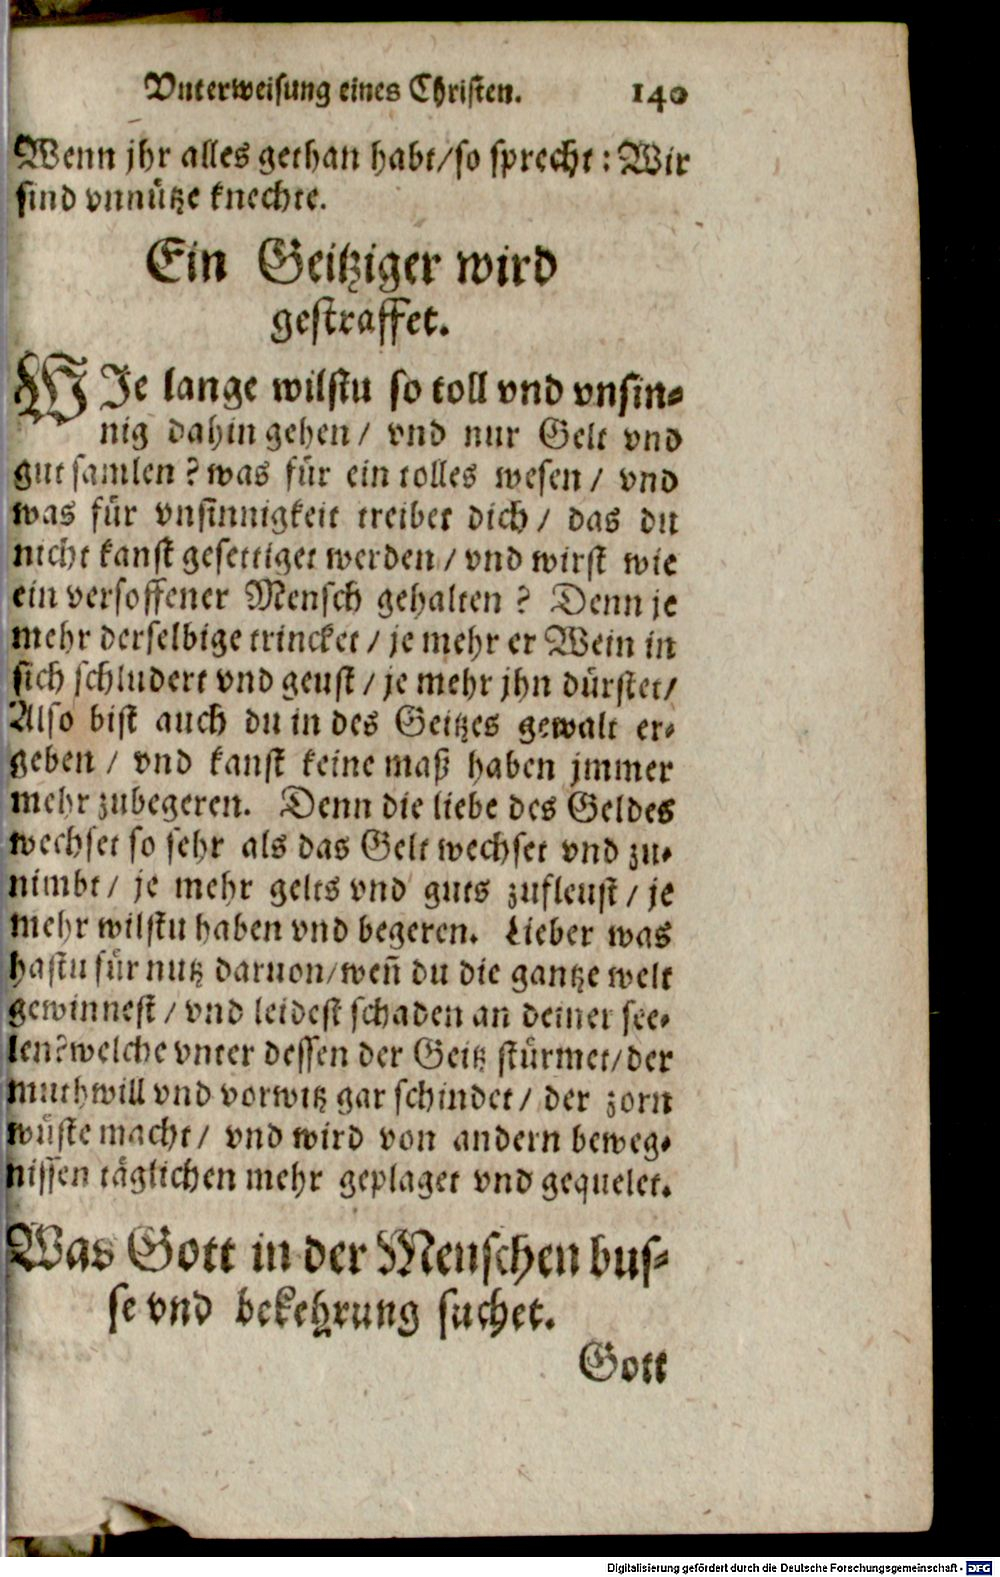 Vnterweisung eines Christen. 140
Wenn jhr alles gethan habt/so sprecht: Wir
sind vnnütze knechte.
Ein Geitziger wird
gestraffet.
WIe lange wilstu so toll vnd vnsin-
nig dahin gehen/ vnd nur Gelt vnd
gut samlen? was für ein tolles wesen/ vnd
was für vnsinnigkeit treibet dich/ das du
nicht kanst gesettiget werden/ vnd wirst wie
ein versoffener Mensch gehalten? Denn je
mehr derselbige trincket/ je mehr er Wein in
sich schludert vnd geust/ je mehr jhn dürstet/
Also bist auch du in des Geitzes gewalt er-
geben/ vnd kanst keine maß haben jmmer
mehr zubegeren. Denn die liebe des Geldes
wechset so sehr als das Gelt wechset vnd zu-
nimbt/ je mehr gelts vnd guts zufleust/ je
mehr wilstu haben vnd begeren. Lieber was
hastu für nutz daruon/weñ du die gantze welt
gewinnest/ vnd leidest schaden an deiner see-
len?welche vnter dessen der Geitz stürmet/der
muthwill vnd vorwitz gar schindet/ der zorn
wüste macht/ vnd wird von andern beweg-
nissen täglichen mehr geplaget vnd gequelet.
Was Gott in der Menschen bus-
se vnd bekehrung suchet.
Gott
Digitalisierung gefördert durch die Deutsche Forschungsgemeinschaft - DFG